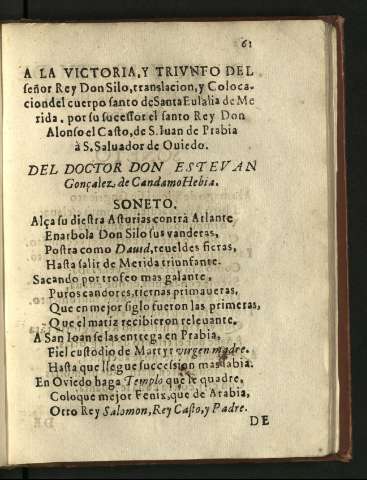 61
A LA VICTORIA, Y TRIVNFO DEL
señor Rey Don Silo, translacion, y Coloca-
cion del cuerpo santo de Santa Eulalia de Me
rida, por su sucessor el santo Rey Don
Alonso el Casto, de S. Iuan de Prabia
à S. Saluador de Ouiedo.
DEL DOCTOR DON ESTEVAN
Gonçalez de Candamo Hebia.
SONETO.
Alça su diestra Asturias contrà Atlante
Enarbola Don Silo sus vanderas,
Postra como Dauid, reueldes fieras,
Hasta salir de Merida triunfante.
Sacando por trofeo mas galante,
Puros candores, tiernas primaueras,
Que en mejor siglo fueron las primeras,
Que el matiz recibieron releuante.
A San Ioan se las entrega en Prabia,
Fiel custodio de Martyr virgen madre.
Hasta que llegue succession mas sabia.
En Oviedo haga Templo que le quadre,
Coloque mejor Fenix, que de Arabia,
Otro Rey Salomon, Rey Casto, y Padre.
DE